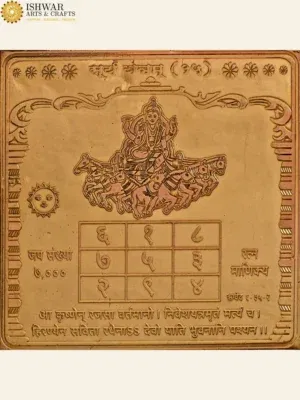 ISHWAR
ARTS & CRAFTS
सूर्य यंत्रम् (१५)
६ १ ८
जप संख्या
७,०००
७ ५ ३
रत्न
माणिक्य
२ ९ ४
ॐ कृष्णेन रजसा वर्तमानो । निवेशयन्नमृतं मर्त्यं च ।
हिरण्येन सविता रथेनाऽऽ देवो याति भुवनानि पश्यन ।।